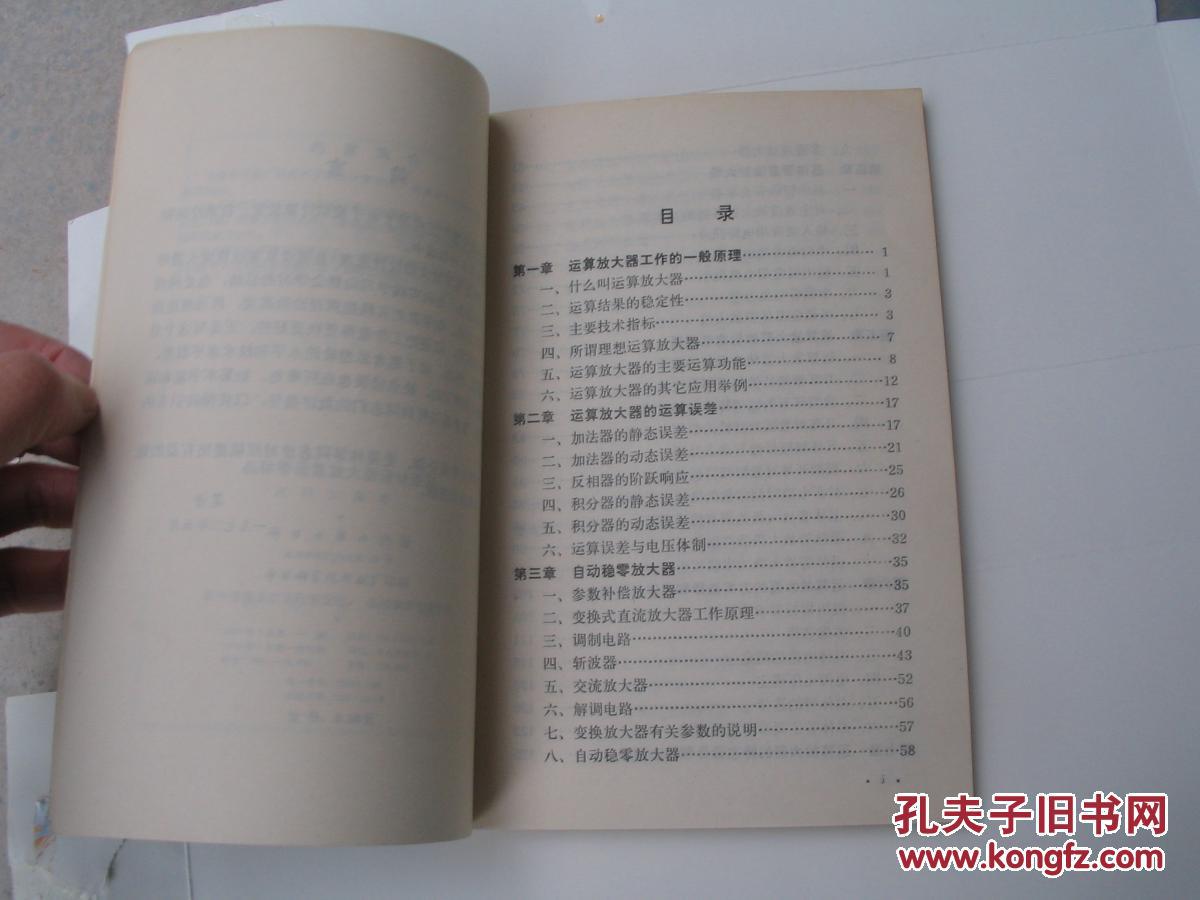 目 录
第一章 运算放大器工作的一般原理……………………1
一、什么叫运算放大器……………………1
二、运算结果的稳定性……………………3
三、主要技术指标……………………3
四、所谓理想运算放大器……………………7
五、运算放大器的主要运算功能……………………8
六、运算放大器的其它应用举例……………………12
第二章 运算放大器的运算误差……………………17
一、加法器的静态误差……………………17
二、加法器的动态误差……………………21
三、反相器的阶跃响应……………………25
四、积分器的静态误差……………………26
五、积分器的动态误差……………………30
六、运算误差与电压体制……………………32
第三章 自动稳零放大器……………………35
一、参数补偿放大器……………………35
二、变换式直流放大器工作原理……………………37
三、调制电路……………………40
四、斩波器……………………43
五、交流放大器……………………52
六、解调电路……………………56
七、变换放大器有关参数的说明……………………57
八、自动稳零放大器……………………58
孔夫子旧书网
www.kongfz.com